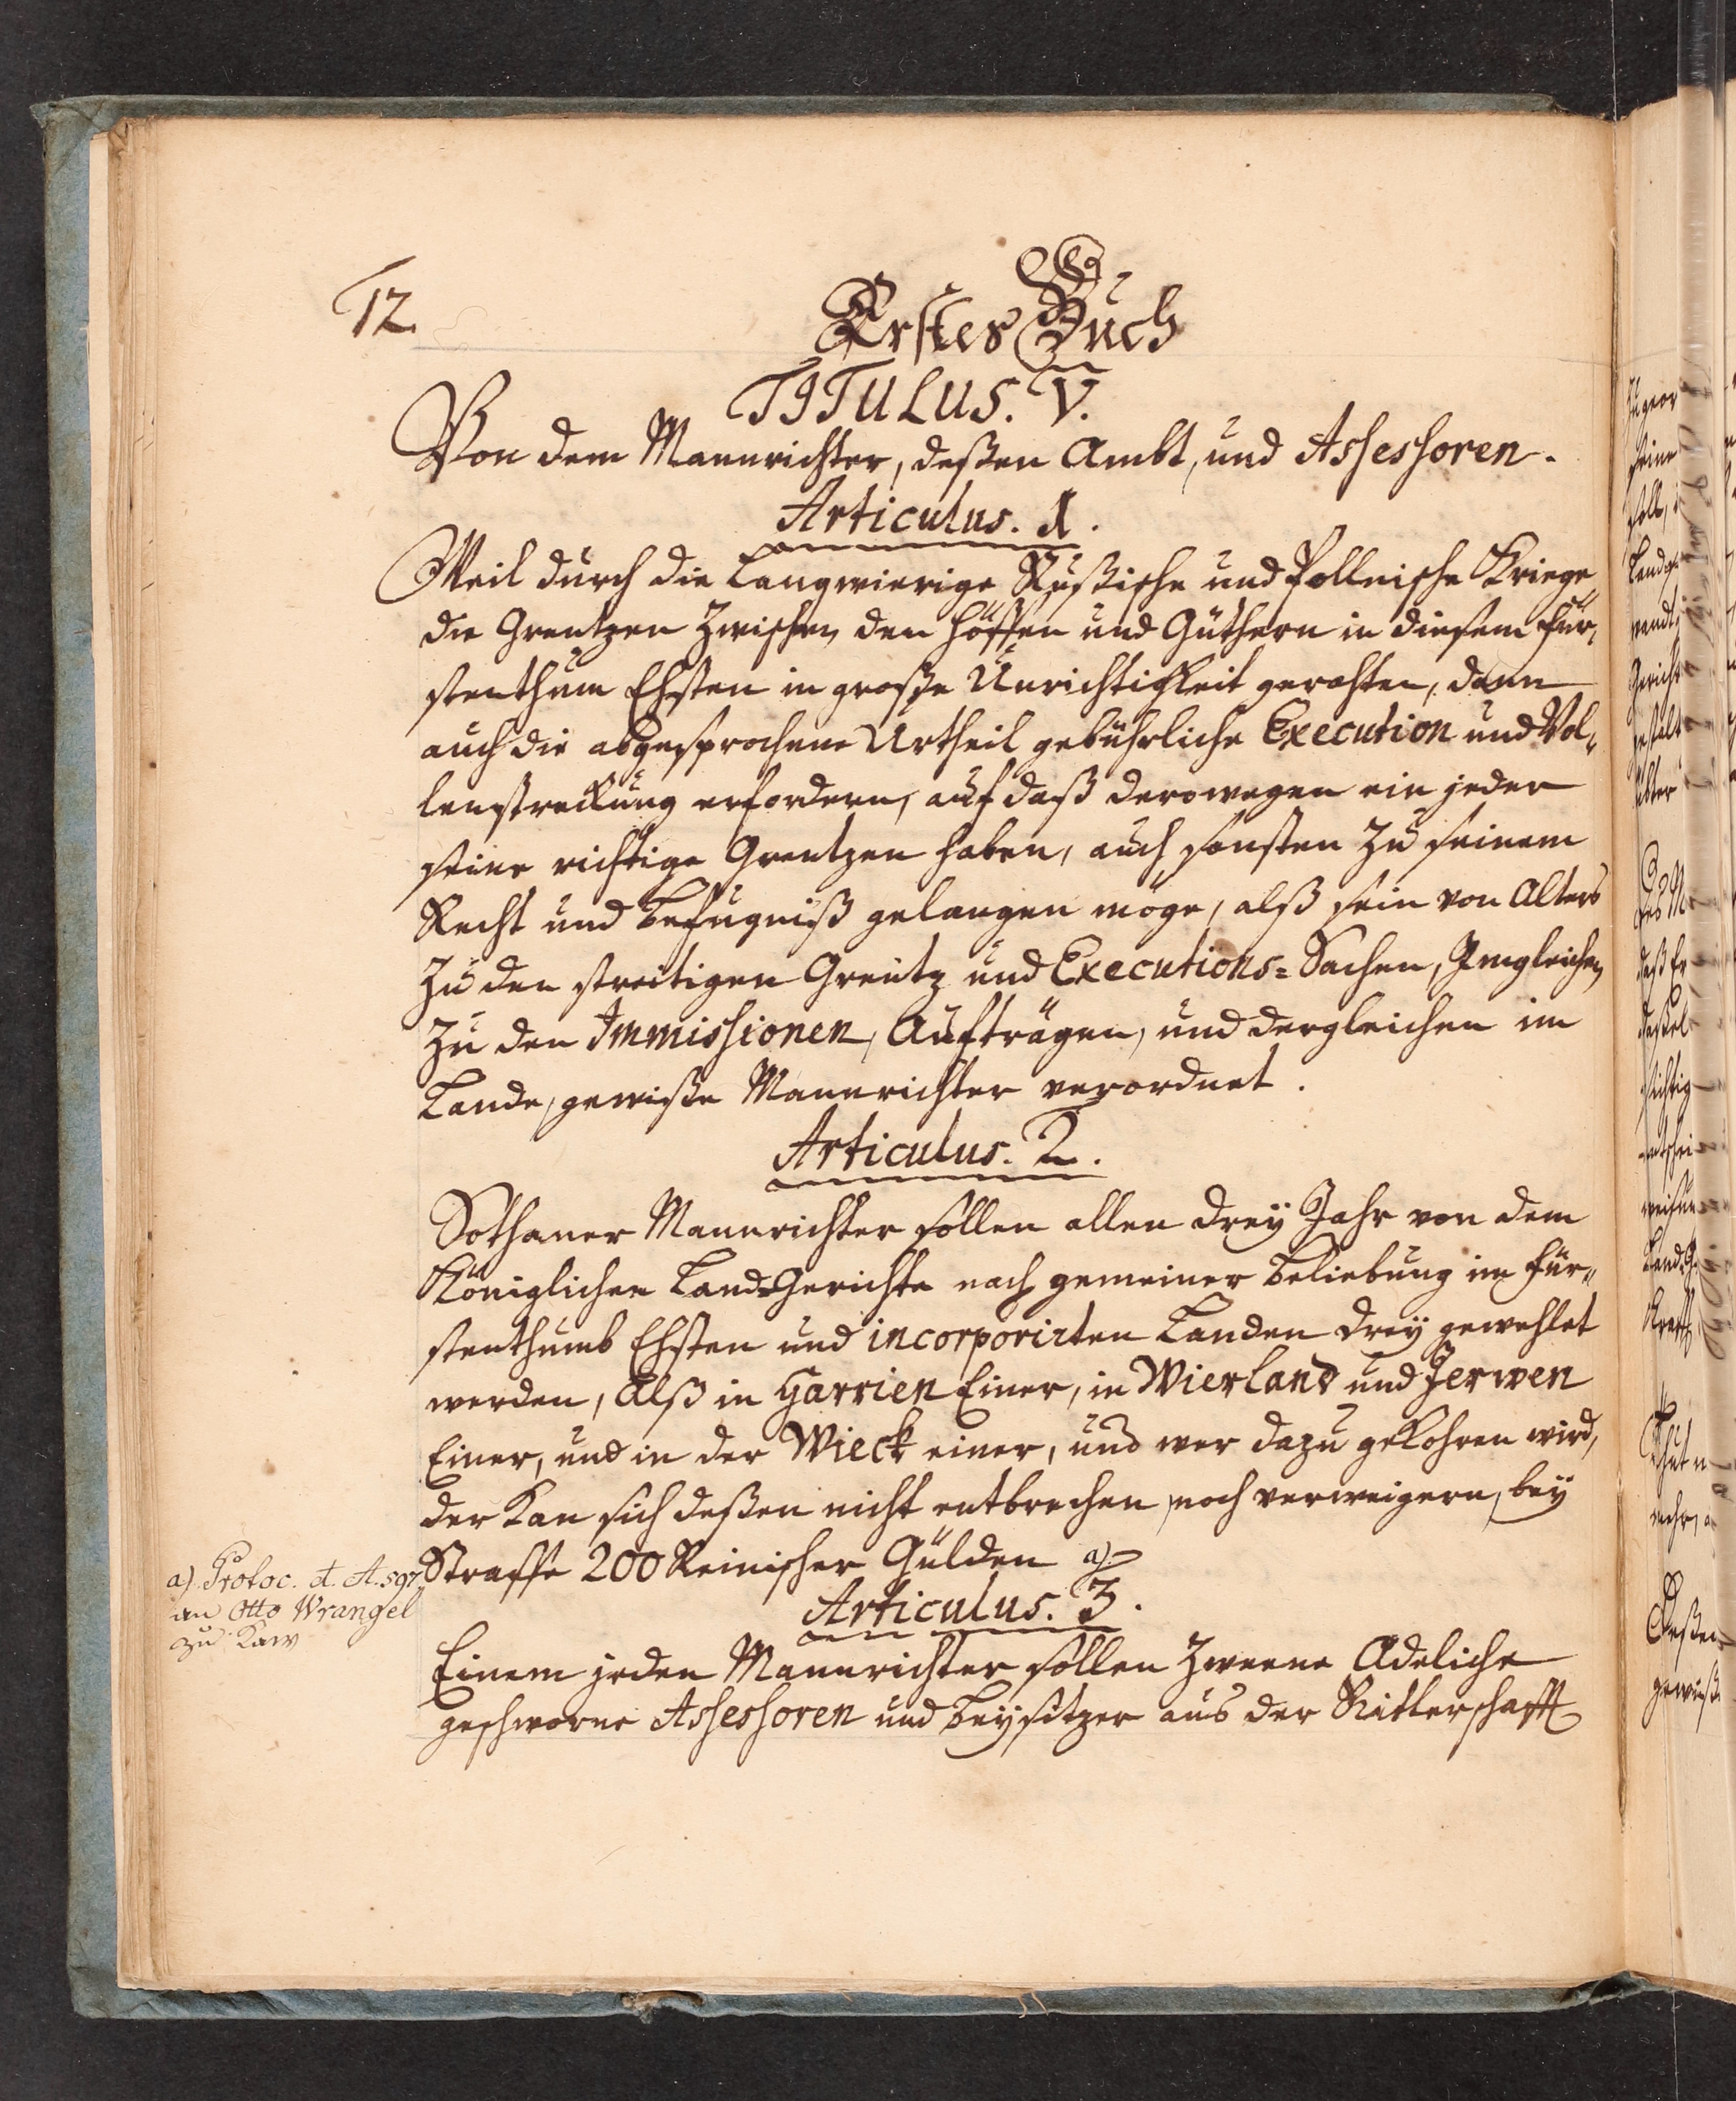 12.
Erstes Buch
TITULUS. V.
Von dem Mannrichter, deßen Ambt, und Assessoren.
Articulus. 1.
Weil durch die langwierige Rußische und Pollnische Kriege
die Grentzen zwischen den Höffen und Güthern in diesem Für„
stenthum Ehsten in große Unrichtigkeit gerahten, dann
auch die abgesprochene Urtheil gebührliche Execution und Vol„
lenstreckung erfordern, auf daß derowegen ein jeder
seine richtige Grentzen haben, auch sonsten zu seinem
Recht und Befugniß gelangen möge, alß sein von Alters
zu den streitigen Grentz und Executions=Sachen, Imgleichen
zu den Immissionen, Aufträgen, und dergleichen im
Lande, gewiße Mannrichter verordnet.
Articulus. 2.
Sothaner Mannrichter sollen allen drey Jahr von dem
Königlichen Land-Gerichte nach gemeiner Beliebung im Für„
stenthumb Ehsten und incorporirten Landen drey gewehlet
werden, Alß in Harrien Einer, in Wierland und Jerwen
Einer, und in der Wieck einer, und wer dazu gekohren wird,
der kan sich deßen nicht entbrechen, noch verweigern, bey
Straffe 200 Reinischer Gülden a)
a). Protoc. A. A. 597.
an Otto Wrangel
zu Kaw
Articulus. 3.
Einem jeden Mannrichter sollen zweene Adeliche
geschworne Assessoren und Beysitzer aus der Ritterschafft